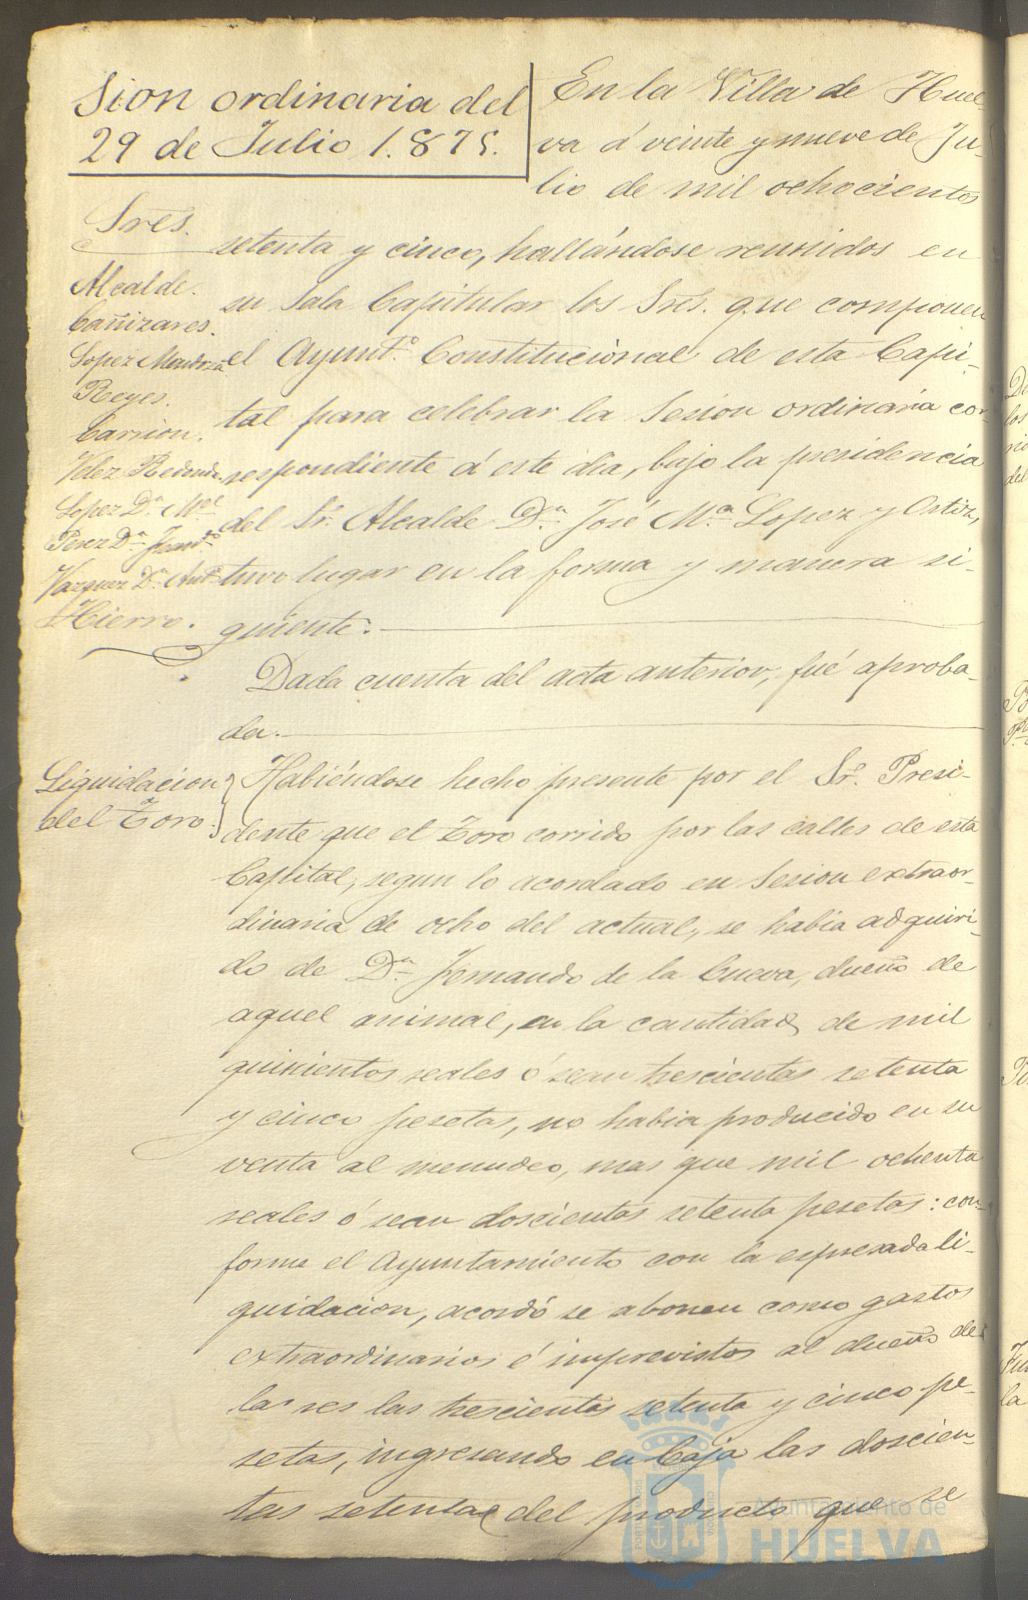 Sion ordinaria del
29 de Julio 1.875.
En la Villa de Huel-
va á veinte y nueve de Ju-
lio de mil ochocientos
setenta y cinco, hallándose reunidos en
su Sala Capitular los Sres. que componen
el Ayunt.º Constitucional de esta Capi-
tal para celebrar la Sesion ordinaria cor-
respondiente á este dia, bajo la presidencia
del Sr. Alcalde Dn. José Mª Lopez y Ortiz,
tuvo lugar en la forma y manera si-
guiente.
Sres.
Alcalde.
Cañizares.
Lopez Mendoza
Reyes.
Carrion.
Velez Redondo.
Lopez Dn. Mel
Perez Dn. Fern.do
Vazquez Dn. Ant.º
Hierro.
Dada cuenta del acta anterior, fué aproba-
da.
Liquidacion
del Toro.
Habiéndose hecho presente por el Sr. Presi-
dente que el Toro corrido por las calles de esta
Capital, segun lo acordado en Sesion extraor-
dinaria de ocho del actual, se habia adquiri-
do de Dn. Fernando de la Cueva, dueño de
aquel animal, en la cantidad de mil
quinientos reales ó sean trescientas setenta
y cinco pesetas, no habia producido en su
venta al menudeo, mas que mil ochenta
reales ó sean doscientas setenta pesetas: con-
forme el Ayuntamiento con la espresada li-
quidacion, acordó se abonen como gastos
extraordinarios é imprevistos al dueño de
la res las trescientas setenta y cinco pe-
setas, ingresando en Caja las doscien-
tas setenta del producto que se
Ayuntamiento de
HUELVA